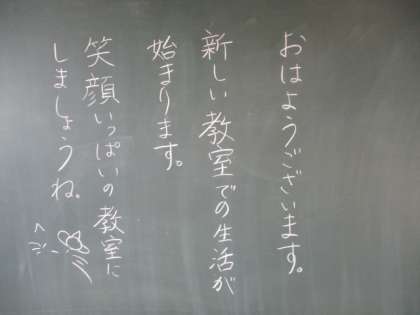 おはようございます。
新しい教室での生活が
始まります。
笑顔いっぱいの教室に
しましょうね。